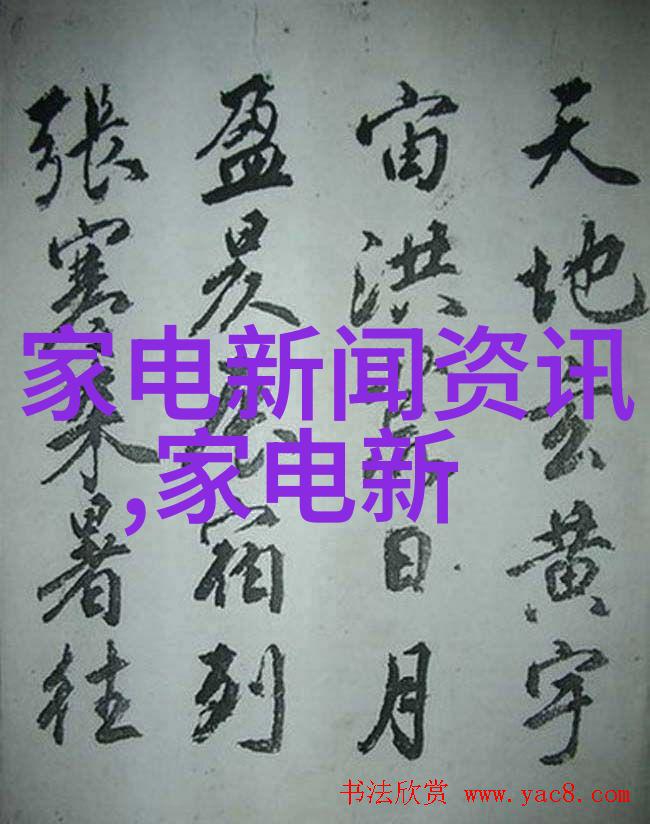 天地玄黄宇
宙洪荒日月
盈昃辰宿列
張寒来暑往
家电新闻资讯
,家电新
书法欣赏 www.yac8.com